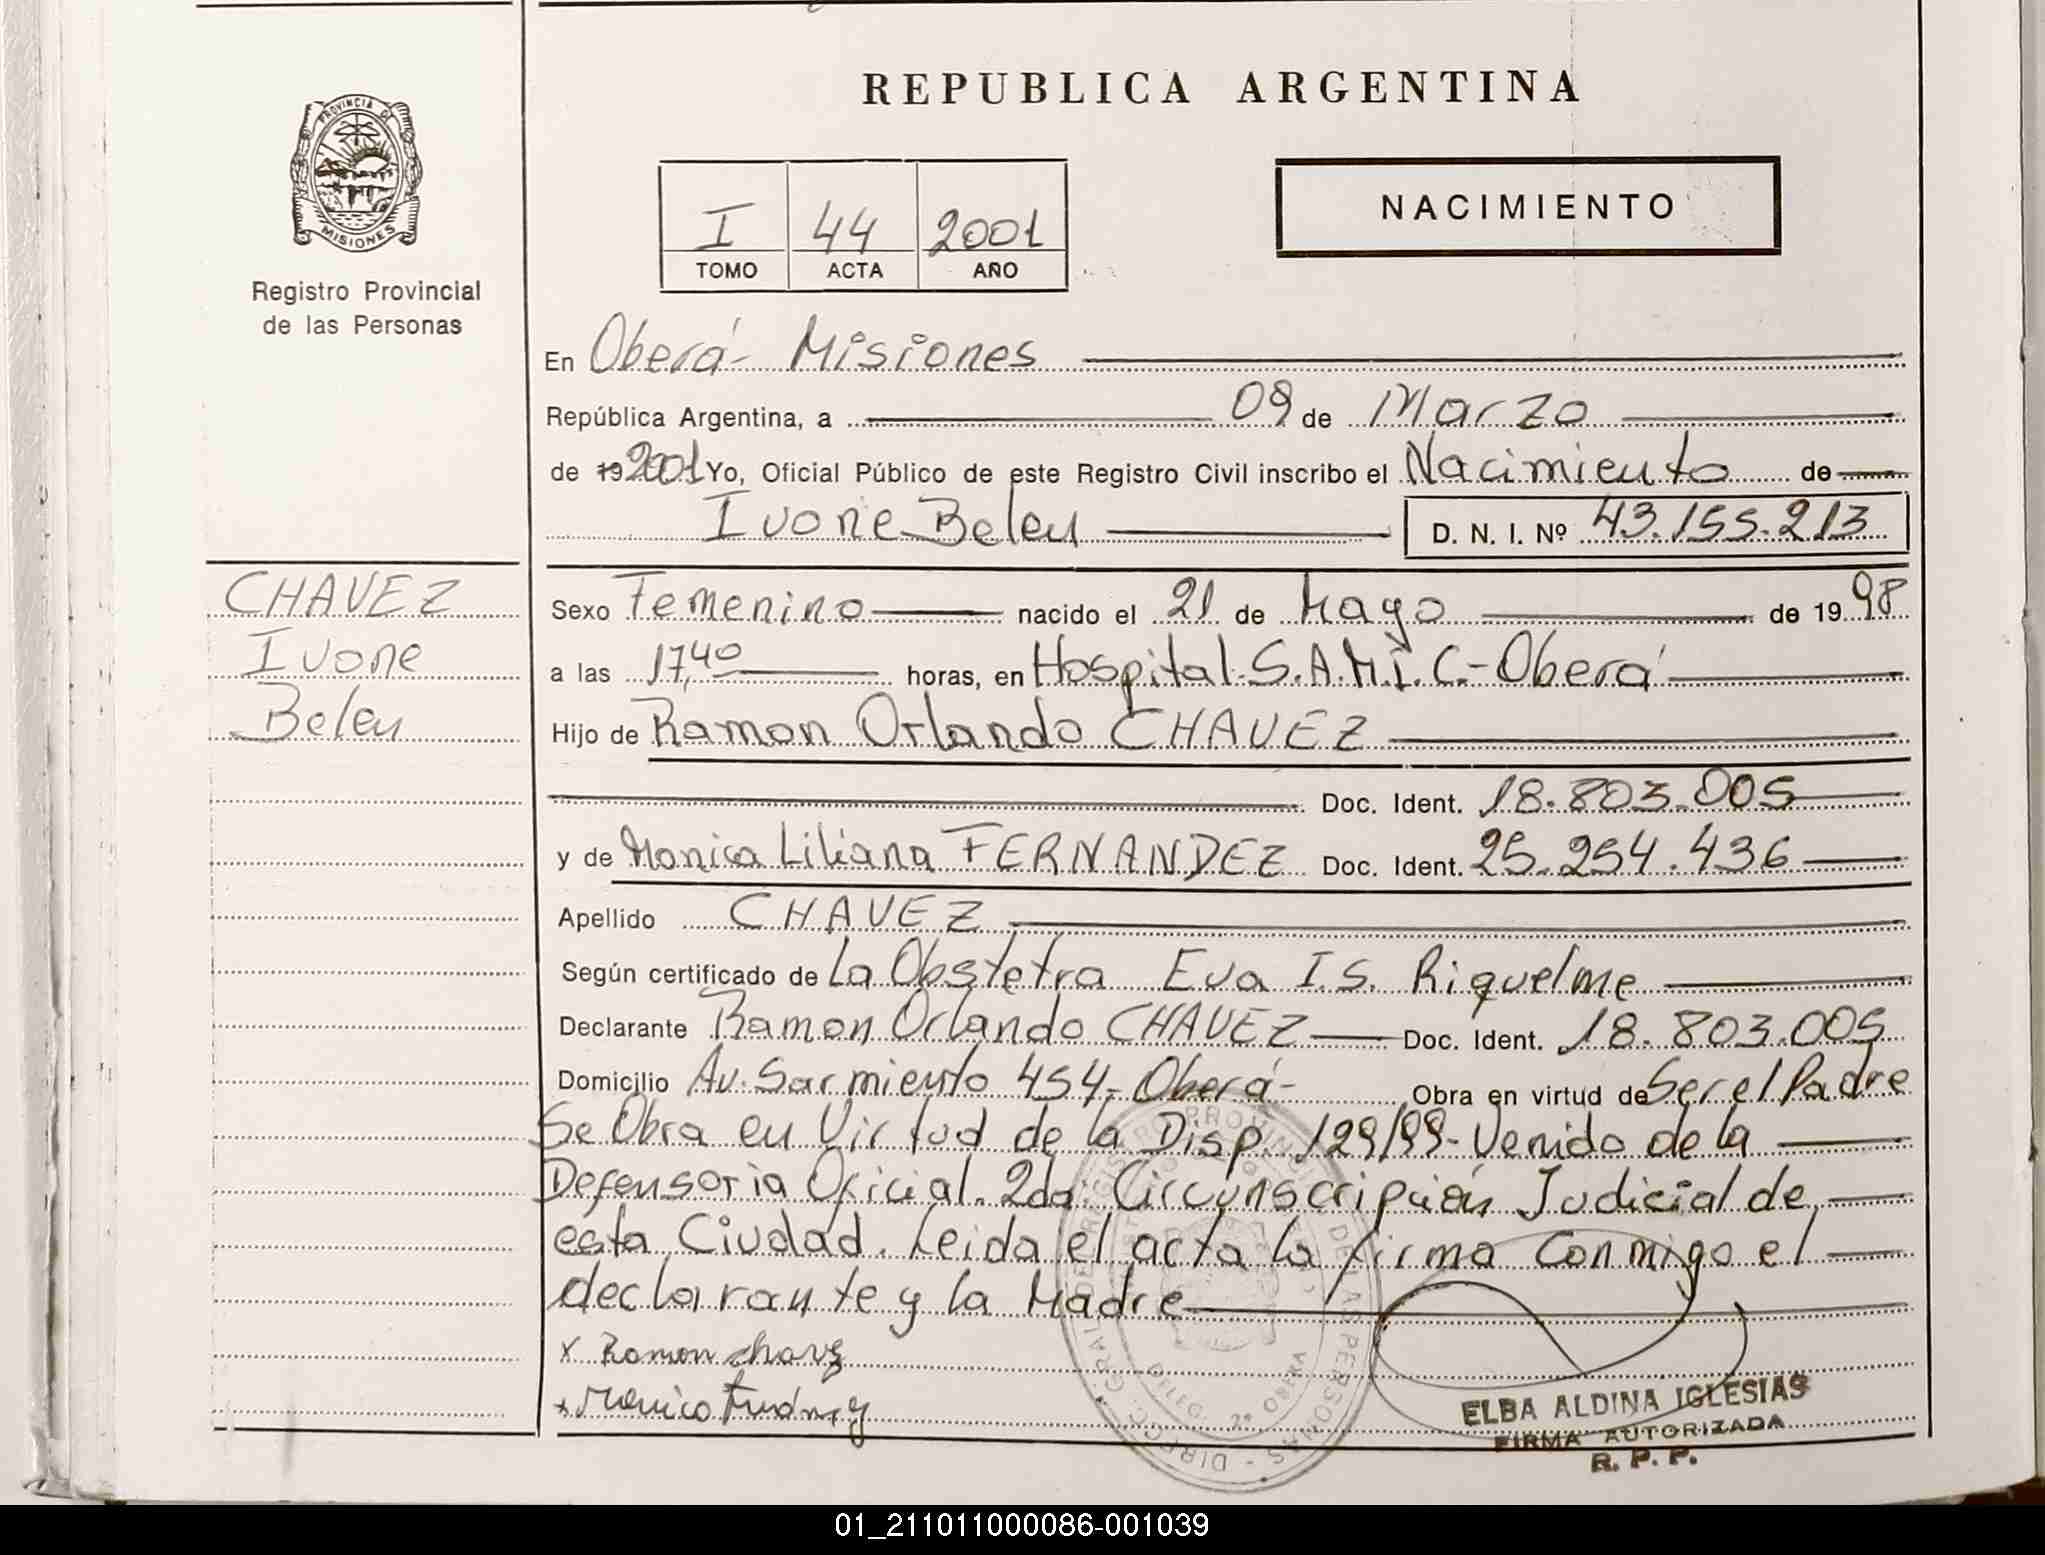 REPUBLICA ARGENTINA
PROVINCIA DE
MISIONES
Registro Provincial
de las Personas
I 44 2001
TOMO ACTA AÑO
NACIMIENTO
En Oberá - Misiones
República Argentina, a 09 de Marzo
de 19 2001 Yo, Oficial Público de este Registro Civil inscribo el Nacimiento de
Ivone Belen D. N. I. Nº 43.155.213
CHAVEZ
Ivone
Belen
Sexo Femenino nacido el 21 de Mayo de 19 98
a las 17,40 horas, en Hospital S.A.M.I.C.- Oberá
Hijo de Ramon Orlando CHAVEZ
Doc. Ident. 18.803.005
y de Monica Liliana FERNANDEZ Doc. Ident. 25.254.436
Apellido CHAVEZ
Según certificado de La Obstetra Eva I.S. Riquelme
Declarante Ramon Orlando CHAVEZ Doc. Ident. 18.803.005
Domicilio Av. Sarmiento 454- Oberá- Obra en virtud de Ser el Padre
Se Obra en Virtud de la Disp. 129/99- Venido de la
Defensoria Oficial 2da. Circunscripción Judicial de
esta Ciudad. Leida el acta la firma conmigo el
declarante y la Madre
x Ramon chavez
x Monica
ELBA ALDINA IGLESIAS
FIRMA AUTORIZADA
R. P. P.
01_211011000086-001039